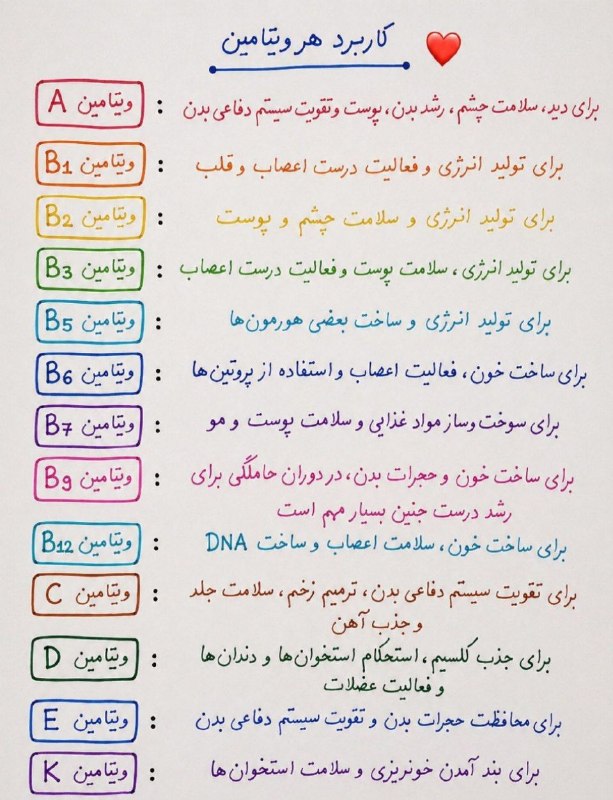 کاربرد هر ویتامین ❤️
ویتامین A : برای دید، سلامت چشم، رشد بدن، پوست و تقویت سیستم دفاعی بدن
ویتامین B1 : برای تولید انرژی و فعالیت درست اعصاب و قلب
ویتامین B2 : برای تولید انرژی و سلامت چشم و پوست
ویتامین B3 : برای تولید انرژی، سلامت پوست و فعالیت درست اعصاب
ویتامین B5 : برای تولید انرژی و ساخت بعضی هورمون‌ها
ویتامین B6 : برای ساخت خون، فعالیت اعصاب و استفاده از پروتین‌ها
ویتامین B7 : برای سوخت وساز مواد غذایی و سلامت پوست و مو
ویتامین B9 : برای ساخت خون و حجرات بدن، در دوران حاملگی برای
رشد درست جنین بسیار مهم است
ویتامین B12 : برای ساخت خون، سلامت اعصاب و ساخت DNA
ویتامین C : برای تقویت سیستم دفاعی بدن، ترمیم زخم، سلامت جلد
و جذب آهن
ویتامین D : برای جذب کلسیم، استحکام استخوان‌ها و دندان‌ها
و فعالیت عضلات
ویتامین E : برای محافظت حجرات بدن و تقویت سیستم دفاعی بدن
ویتامین K : برای بند آمدن خونریزی و سلامت استخوان‌ها